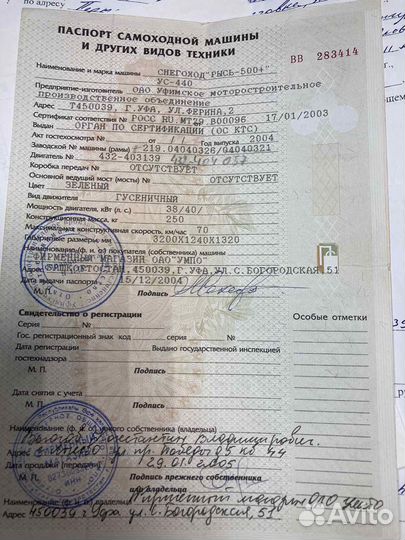 ПАСПОРТ САМОХОДНОЙ МАШИНЫ
И ДРУГИХ ВИДОВ ТЕХНИКИ
ВВ 283414
Наименование и марка машины СНЕГОХОД "РЫСЬ-500+"
УС-440
Предприятие-изготовитель ОАО Уфимское моторостроительное
производственное объединение
Адрес Т450039, Г.УФА, УЛ.ФЕРИНА,2
Сертификат соответствия № РОСС RU.МТ29.В00096 17/01/2003
Выдан ОРГАН ПО СЕРТИФИКАЦИИ (ОС КТС)
Акт гостехосмотра № от Год выпуска 2004
Заводской № машины (рамы) *219.04040326/04040321
Двигатель № 432-403139
Коробка передач № ОТСУТСТВУЕТ
Основной ведущий мост (мосты) № ОТСУТСТВУЕТ
Цвет ЗЕЛЕНЫЙ
Вид движителя ГУСЕНИЧНЫЙ
Мощность двигателя, кВт (л. с.) 38/40/
Конструкционная масса, кг 250
Максимальная конструктивная скорость, км/час 70
Габаритные размеры, мм 3200Х1240Х1320
Наименование (ф. и. о.) покупателя (собственника) машины
ФИРМЕННЫЙ МАГАЗИН ОАО"УМПО"
БАШКОРТОСТАН,450039,Г.УФА,УЛ.С.БОГОРОДСКАЯ,51
Дата выдачи паспорта 15/12/2004
М.П. Подпись
Свидетельство о регистрации
Особые отметки
Серия №
Гос. регистрационный знак код серия №
Дата регистрации Выдано государственной инспекцией
гостехнадзора
М. П. Подпись
Дата снятия с учета
М. П. Подпись
Наименование (ф. и. о.) нового собственника (владельца)
Константин Владимирович
Адрес ул. пр. Победы
Дата продажи 29.01.2005
Подпись прежнего собственника
или владельца
М. П.
Наименование (ф. и. о.) собственника (владельца) Фирменный магазин ОАО УМПО
Адрес 450039 г. Уфа ул. С. Богородская, 51
Avito